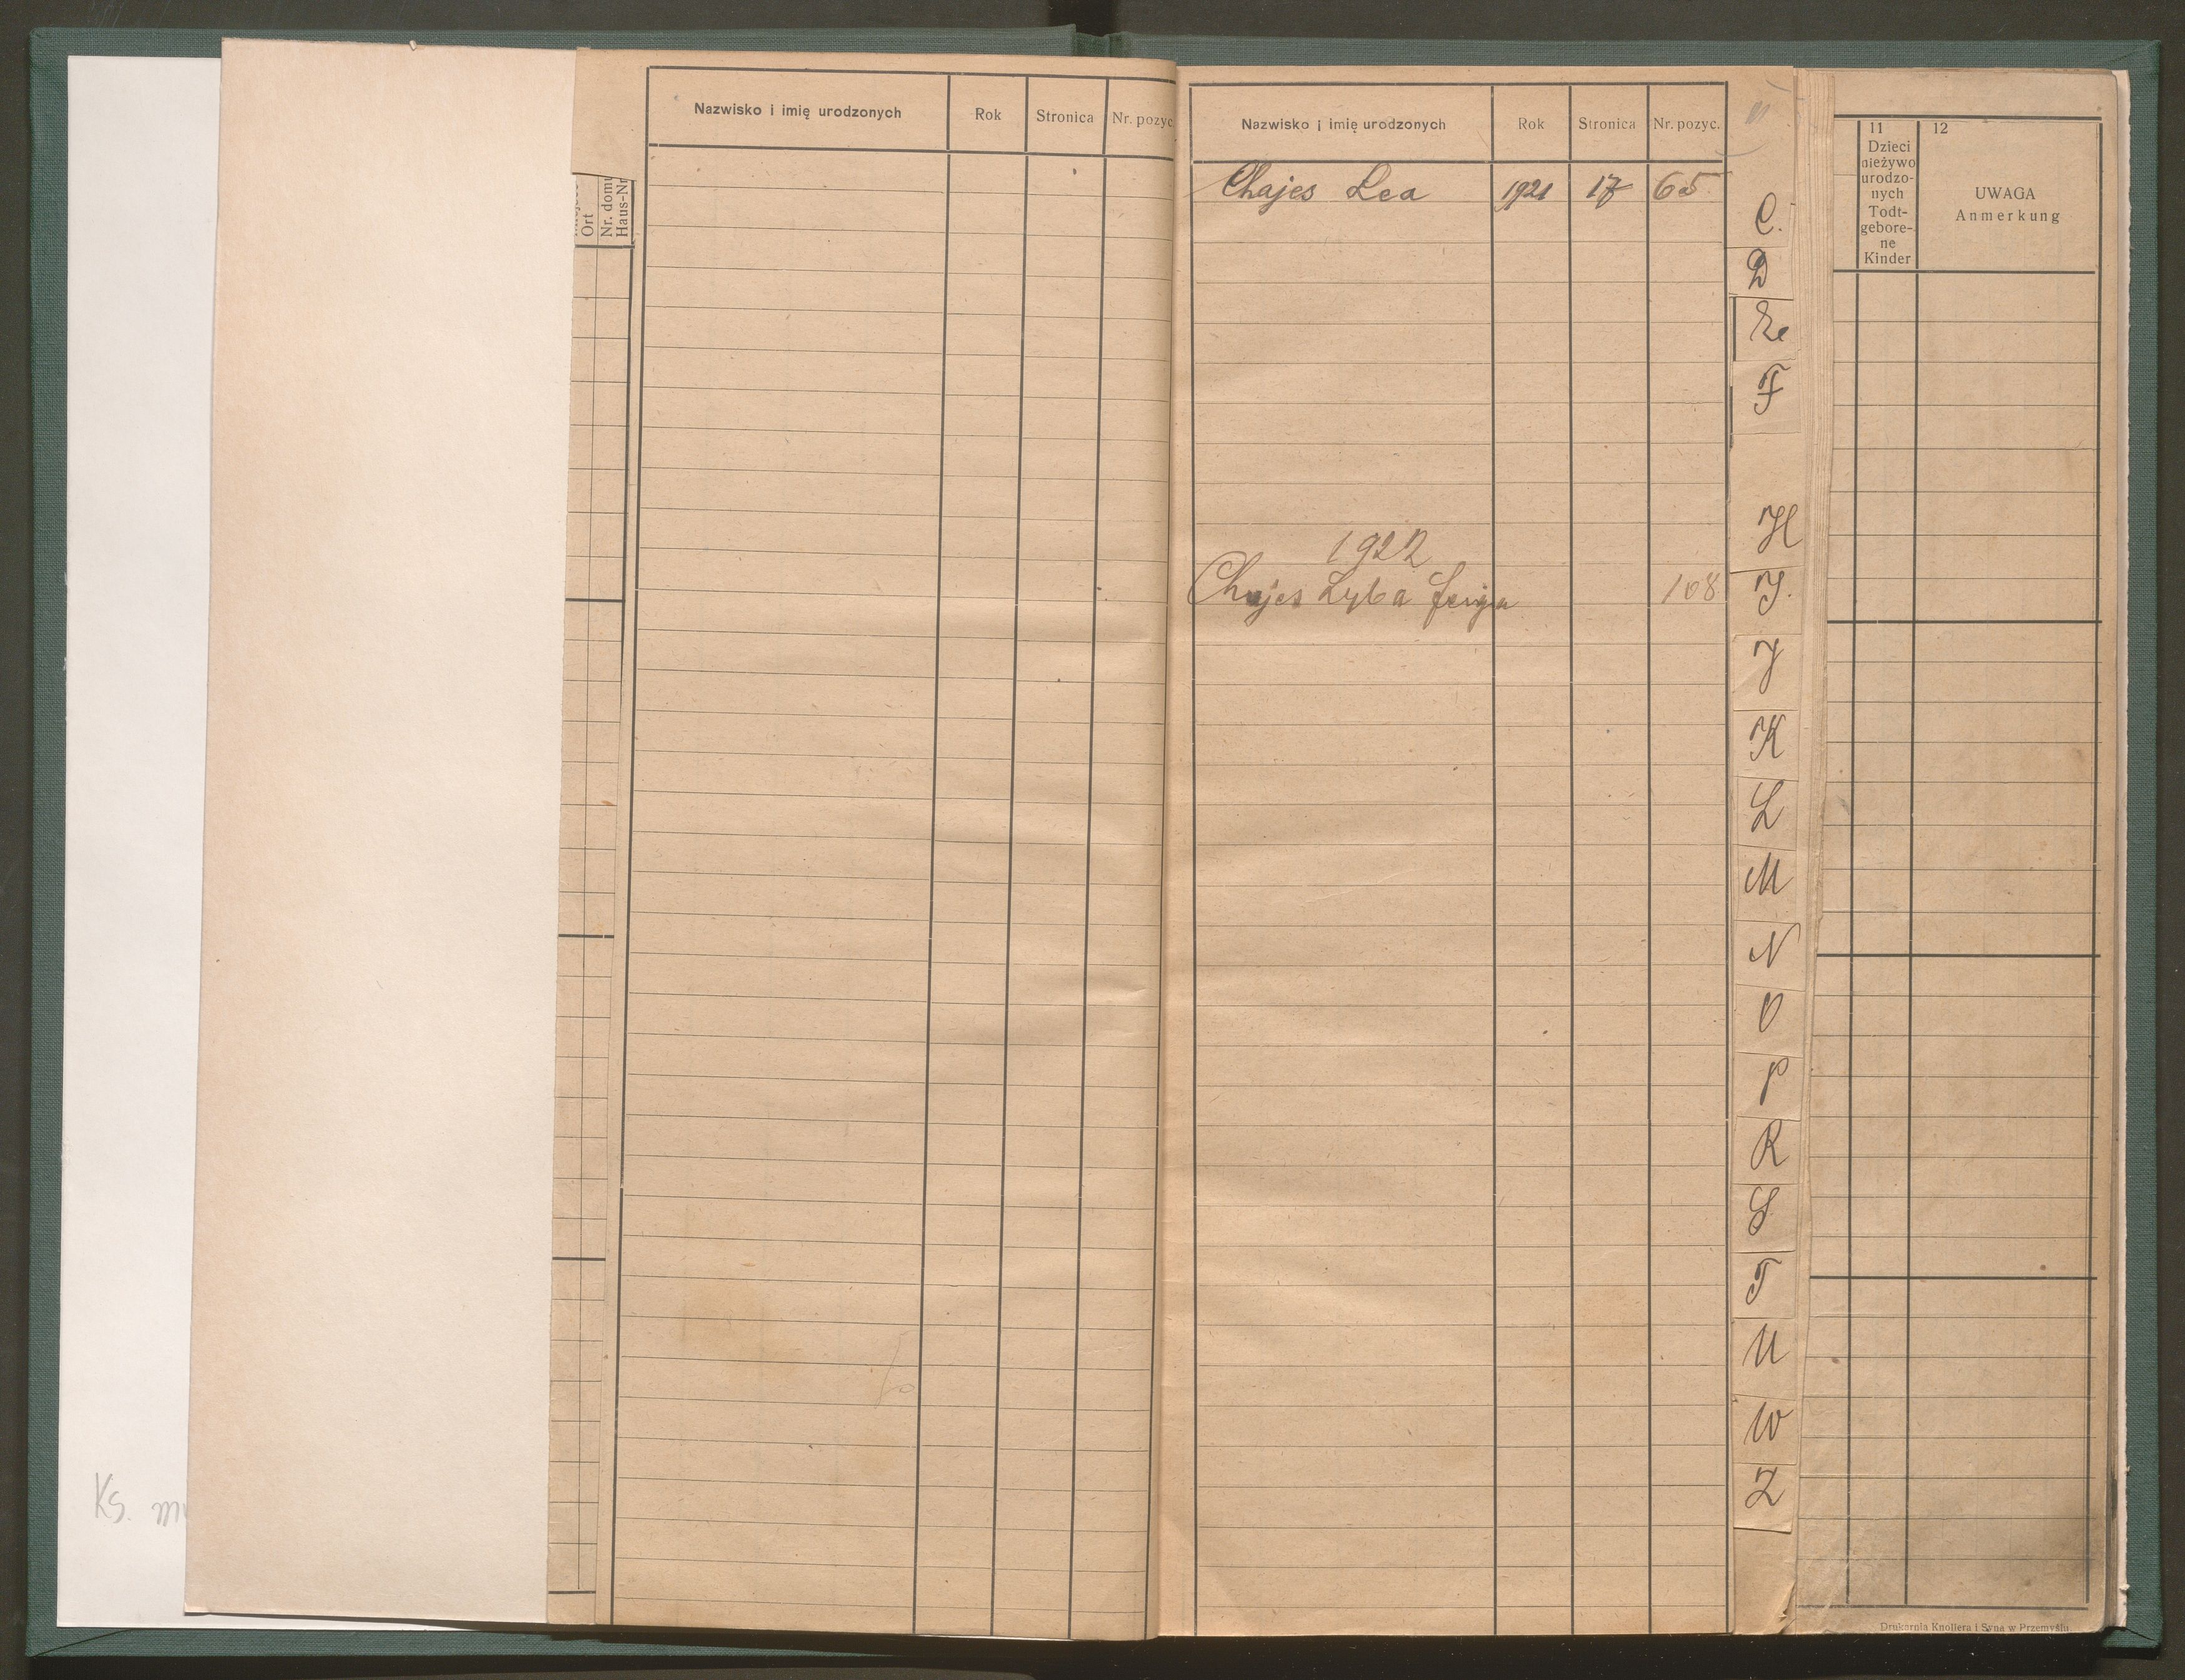 Nazwisko i imię urodzonych Rok Stronica Nr. pozyc.
Ort
Nr. domu
Haus-Nr
Nazwisko i imię urodzonych Rok Stronica Nr. pozyc.
Chajes Lea 1921 17 65
1922
Chajes Lyba Feiga 108
C.
D
F
H
I.
J
K
L
M
N
O
P
R
S
T
U
W
Z
11
Dzieci
nieżywo
urodzo-
nych
Todt-
gebore-
ne
Kinder
12
UWAGA
Anmerkung
Ks.
Drukarnia Knollera i Syna w Przemyślu